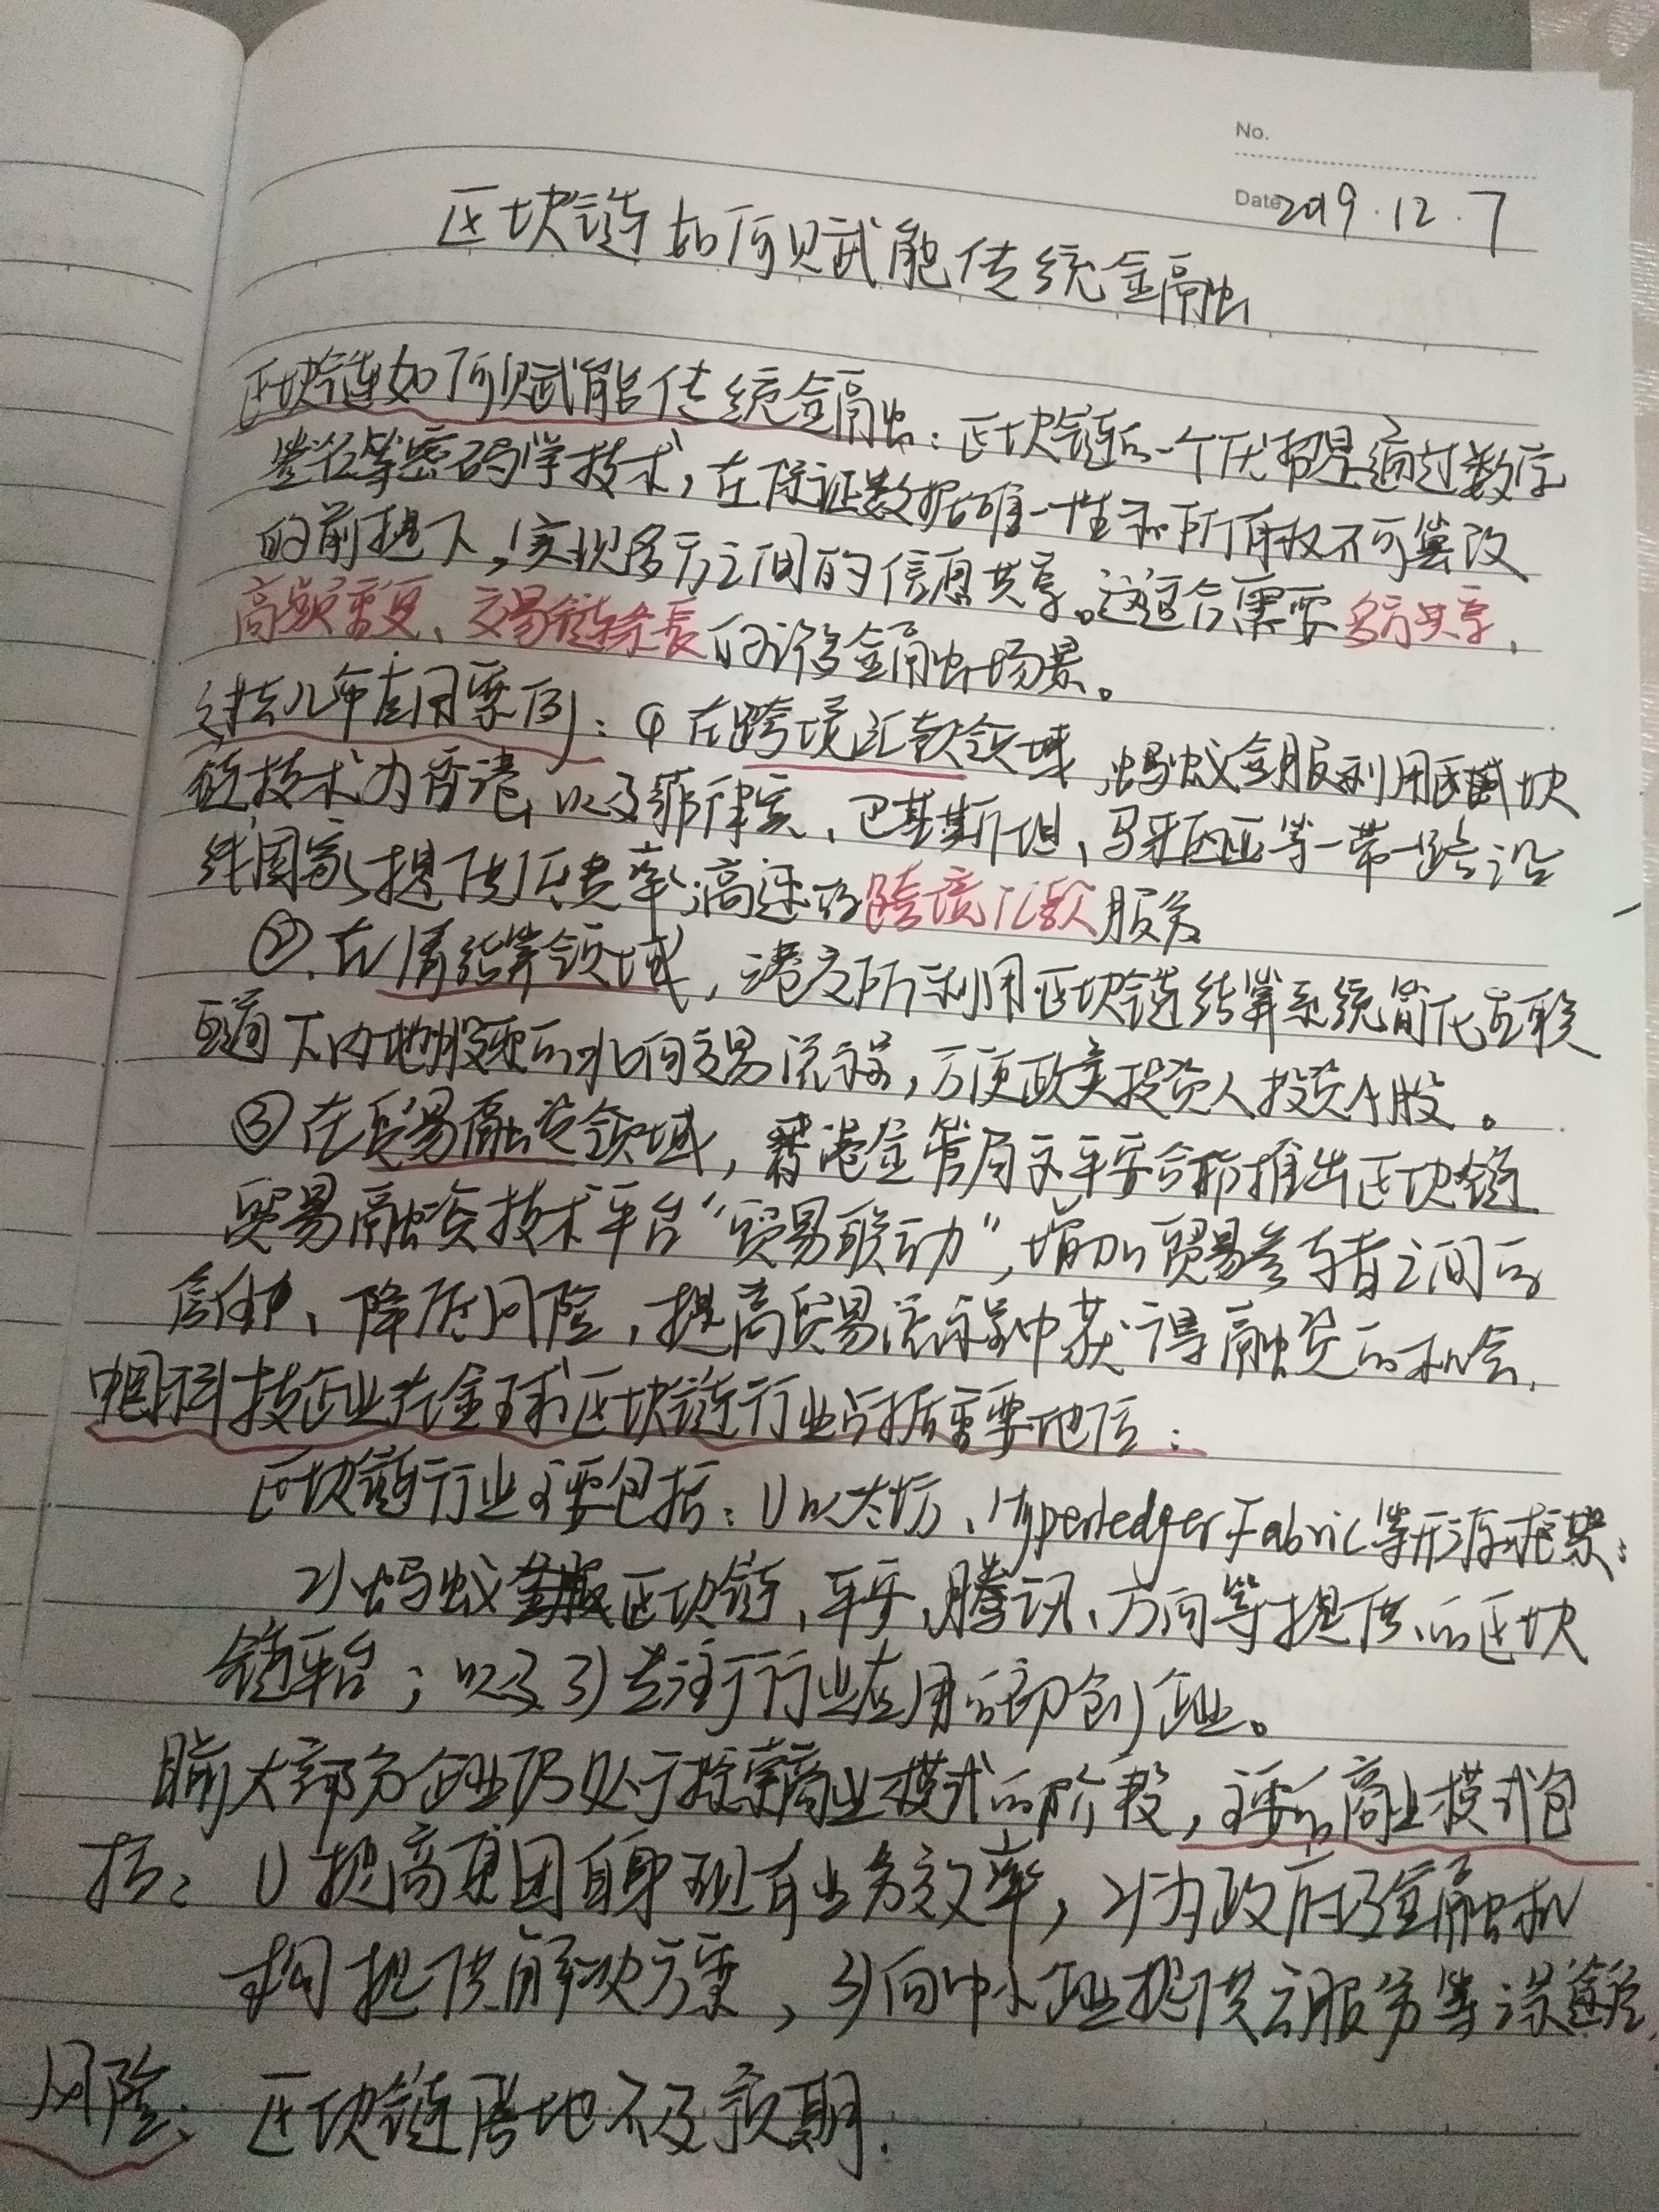 No.
Date 2019.12.7
区块链如何赋能传统金融
区块链如何赋能传统金融：区块链的一个优势是通过数字
签名等密码学技术，在保证数据唯一性和所有权不可篡改
的前提下，实现多方之间的信息共享。这适合需要多方共享，
高频重复、交易链条长的诸多金融场景。
过去几年应用案例：① 在跨境汇款领域，蚂蚁金服利用区块
链技术为香港，以及菲律宾、巴基斯坦、马来西亚等一带一路沿
线国家提供低费率，高速的跨境汇款服务
②、在清结算领域，港交所利用区块链结算系统简化互联
互通下内地股票的北向交易流程，方便欧美投资人投资A股。
③ 在贸易融资领域，香港金管局与平安合作推出区块链
贸易融资技术平台“贸易联动”，增加贸易参与者之间的
信任、降低风险，提高贸易流程中获得融资的机会.
中国科技企业在全球区块链行业占据重要地位：
区块链行业主要包括：1) 以太坊、Hyperledger Fabric等开源框架；
2) 蚂蚁金服区块链、平安、腾讯、万向等提供的区块
链平台；以及 3) 专注于行业应用的初创企业。
目前大部分企业仍处于探索商业模式的阶段，主要的商业模式包
括：1) 提高集团自身现有业务效率，2) 为政府及金融机
构提供解决方案，3) 向中小企业提供云服务等
风险：区块链落地不及预期.